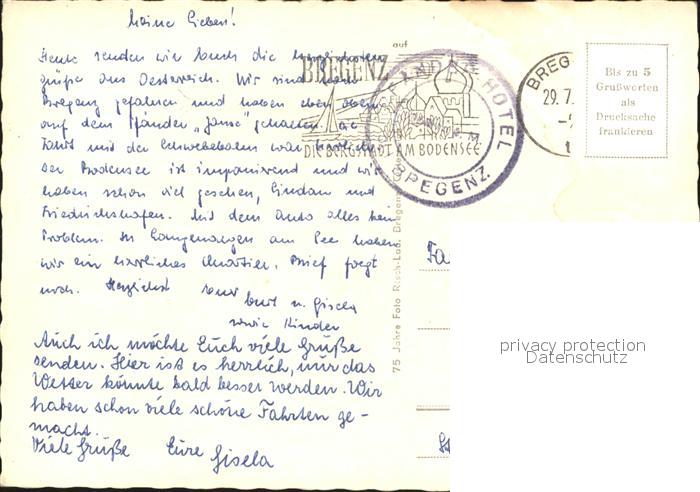 Meine Lieben!
Heute senden wir Euch die herzlichsten
Grüße aus Oesterreich. Wir sind nach
Bregenz gefahren und haben eben oben
auf dem Pfänder „Jause" gehalten. Die
Fahrt mit der Schwebebahn war herrlich
Der Bodensee ist imponierend und wir
haben schon viel gesehen, Lindau und
Friedrichshafen. Mit dem Auto alles kein
Problem. In Langenargen am See haben
wir ein herrliches Quartier. Brief folgt
noch. Herzlichst Eure
Kurt u. Gisela
sowie Kinder
Auch ich möchte Euch viele Grüße
senden. Hier ist es herrlich, nur das
Wetter könnte bald besser werden. Wir
haben schon viele schöne Fahrten ge-
macht.
Viele Grüße Eure
Gisela
auf
BREGENZ
DIE BERGSTADT AM BODENSEE
HOTEL
BREGENZ
BREG
29.7.
Bis zu 5
Grußworten
als
Drucksache
frankieren
75 Jahre Foto Risch-Lau, Bregenz
Fa
privacy protection
Datenschutz